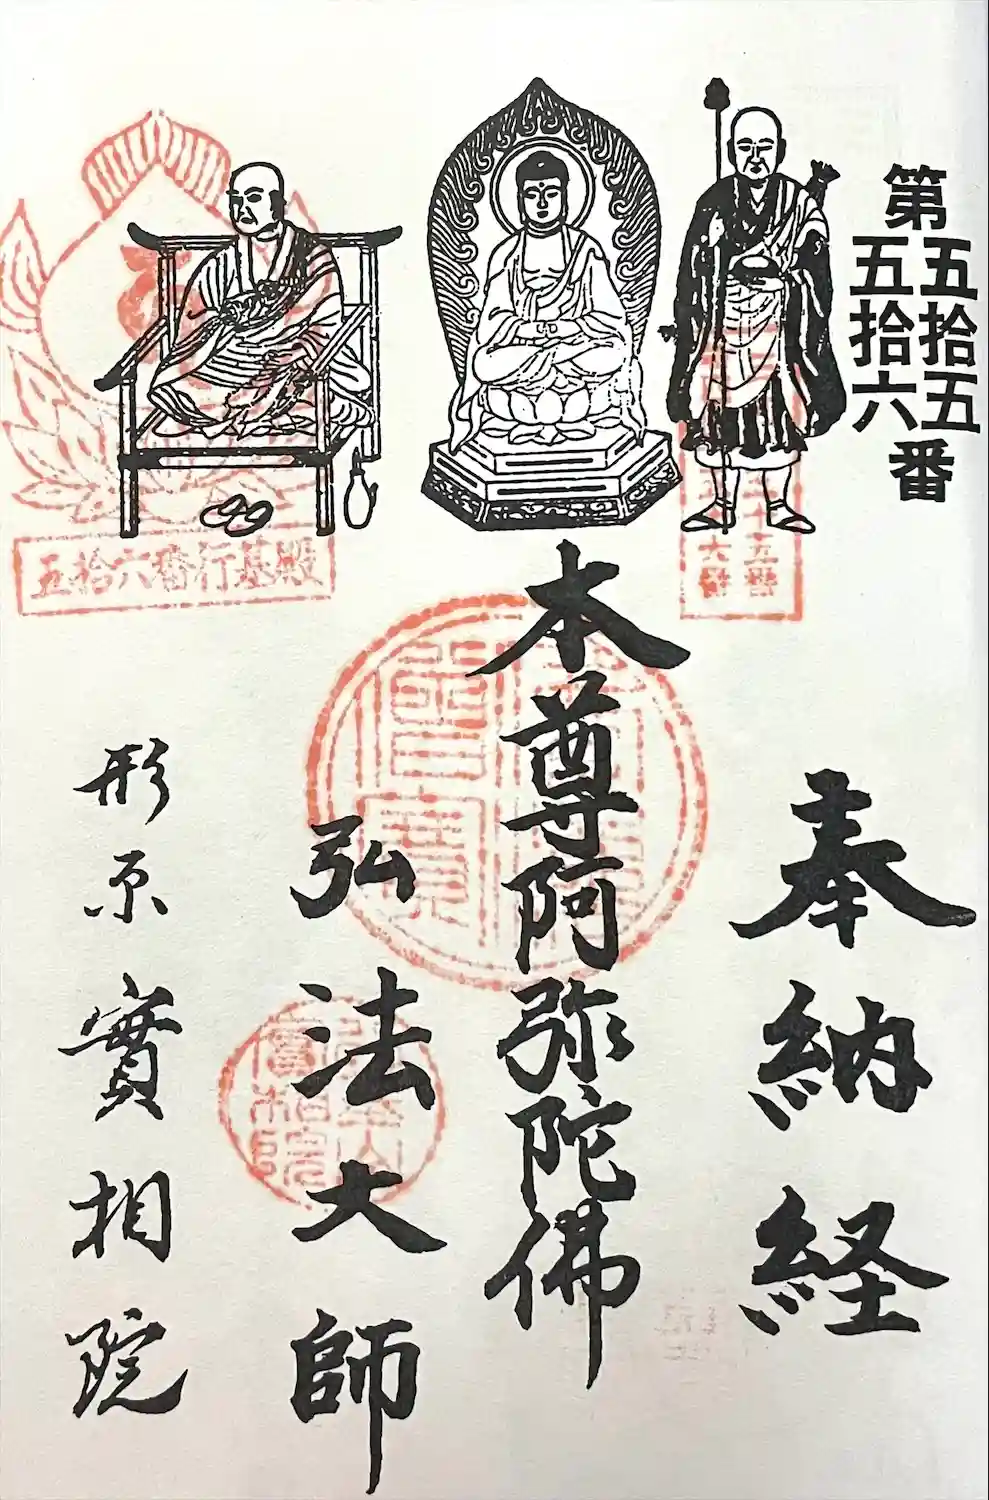 第五拾五
五拾六番
奉納経
本尊阿弥陀佛
弘法大師
形原實相院
五拾六番行基殿
十五番
六番